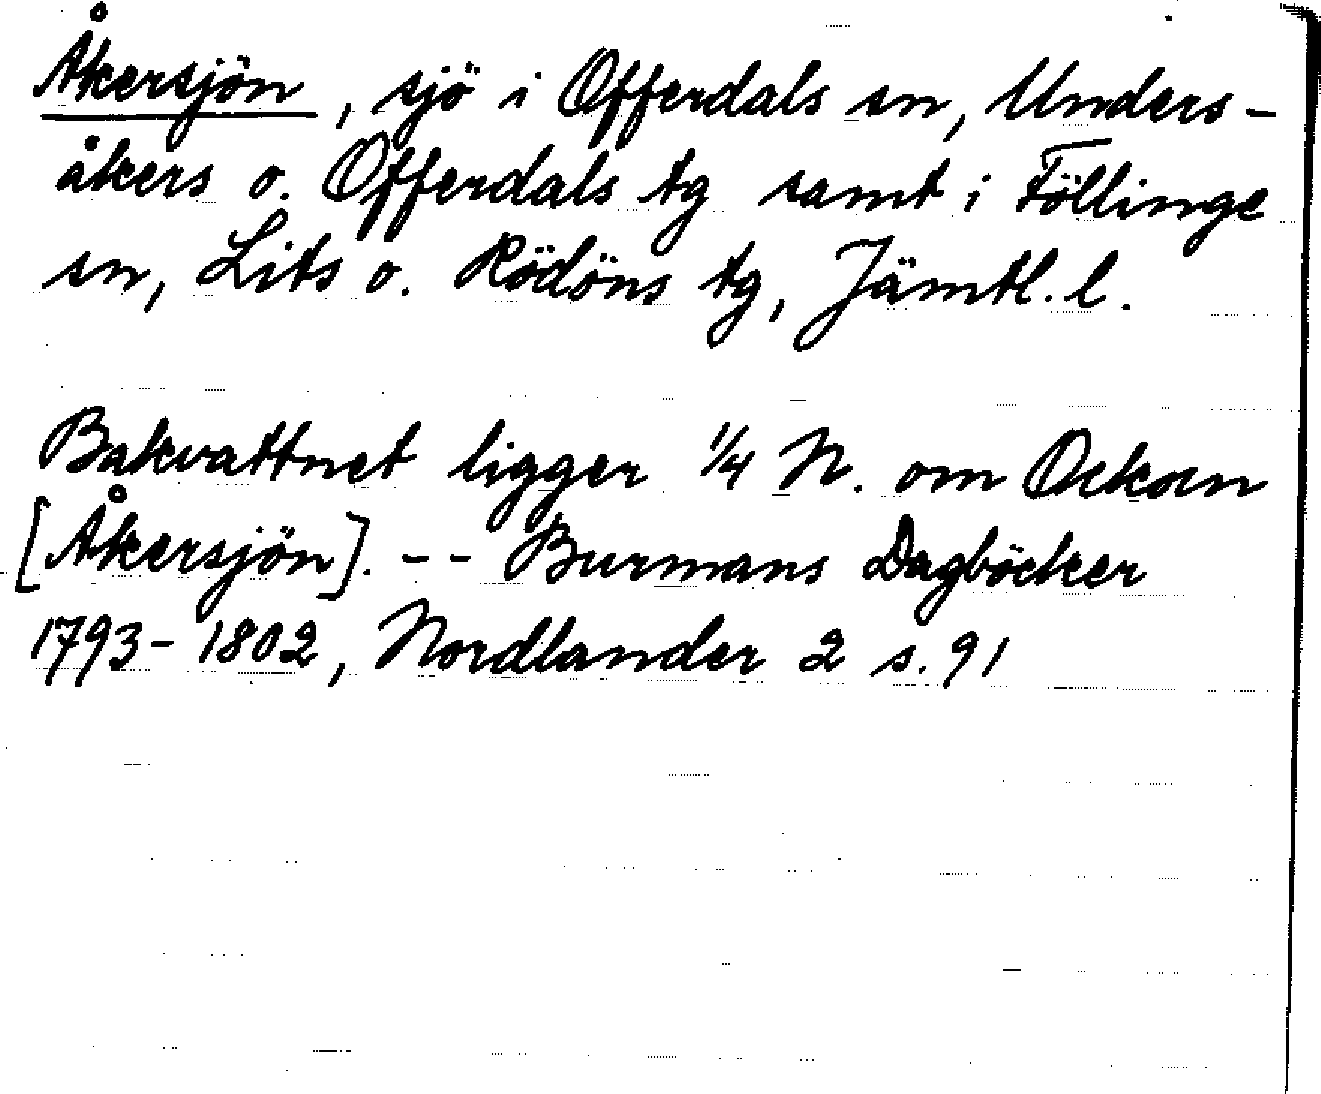 Åkersjön, sjö i Offerdals sn, Unders-
åkers o. Offerdals tg samt i Föllinge
sn, Lits o. Rödöns tg, Jämtl. l.
Bakvattnet ligger 1/4 N. om Ockoen
[Åkersjön]. -- Burmans Dagböcker
1793-1802, Nordlander 2 s. 91